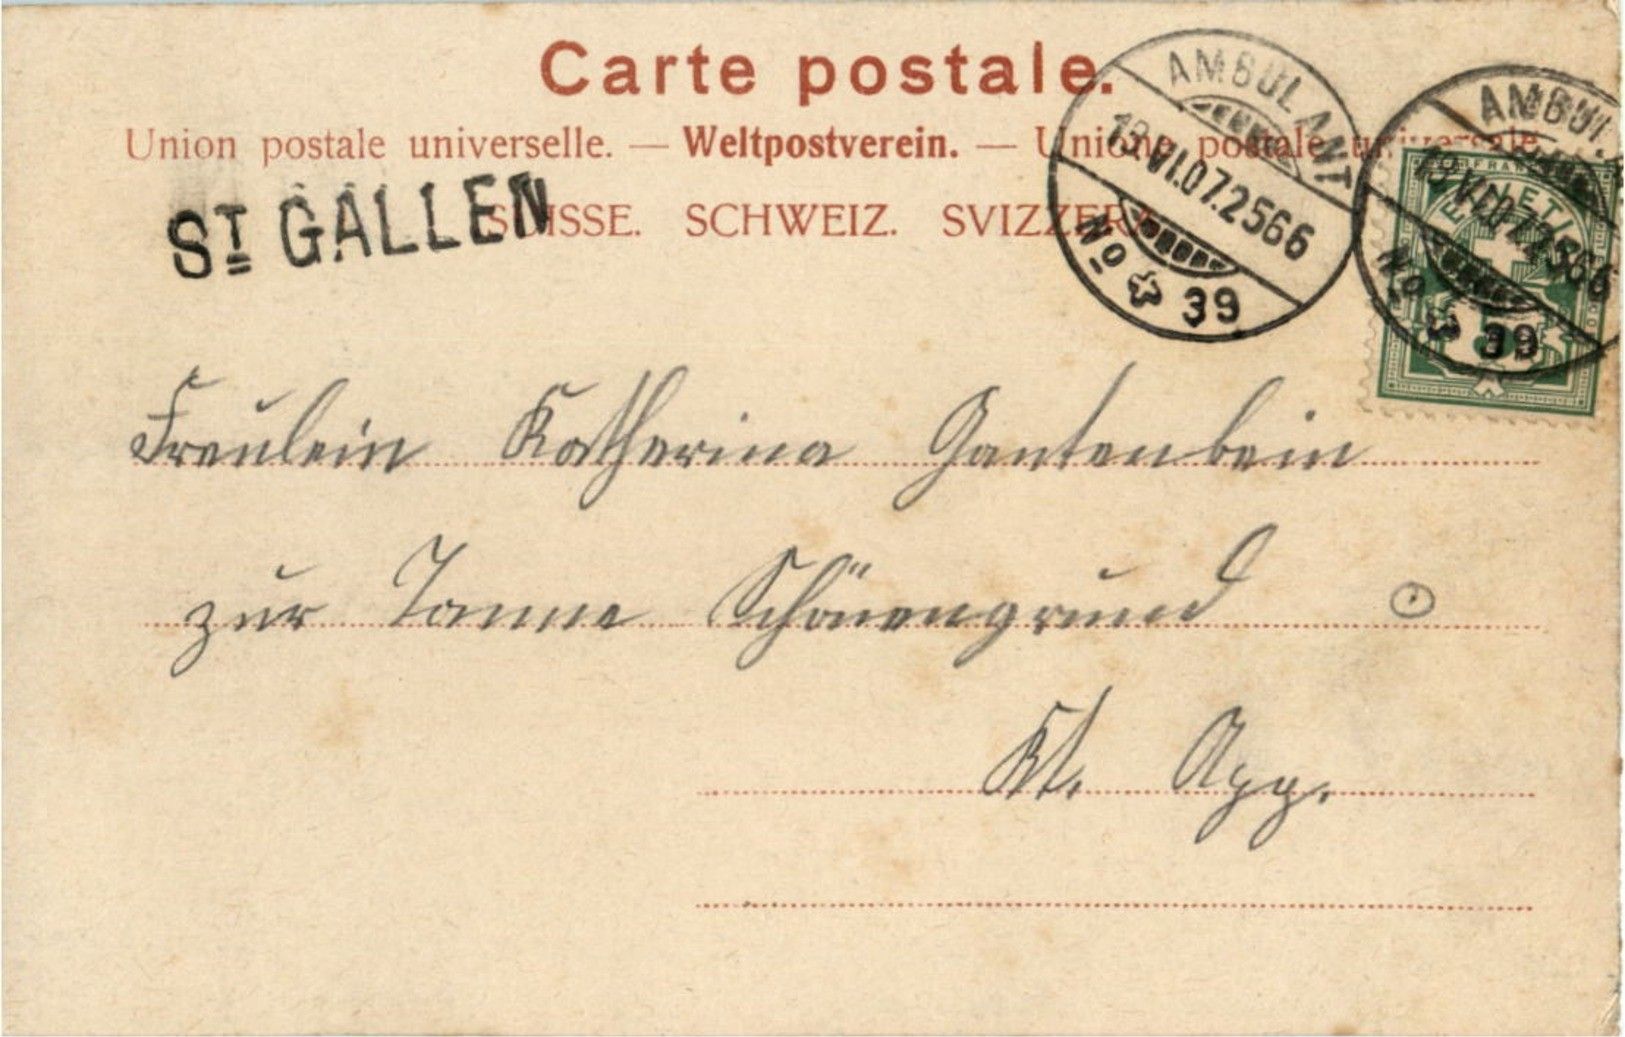 Carte postale.
Union postale universelle. — Weltpostverein. — Unione postale universale
SUISSE. SCHWEIZ. SVIZZERA
ST GALLEN
AMBULANT
13.VI.07.2566
No 39
AMBUL
13.VI.07.2566
No 39
HELVETIA
5
Fräulein Katharina Gantenbein
zur Tanne Schönengrund
Kt. App.